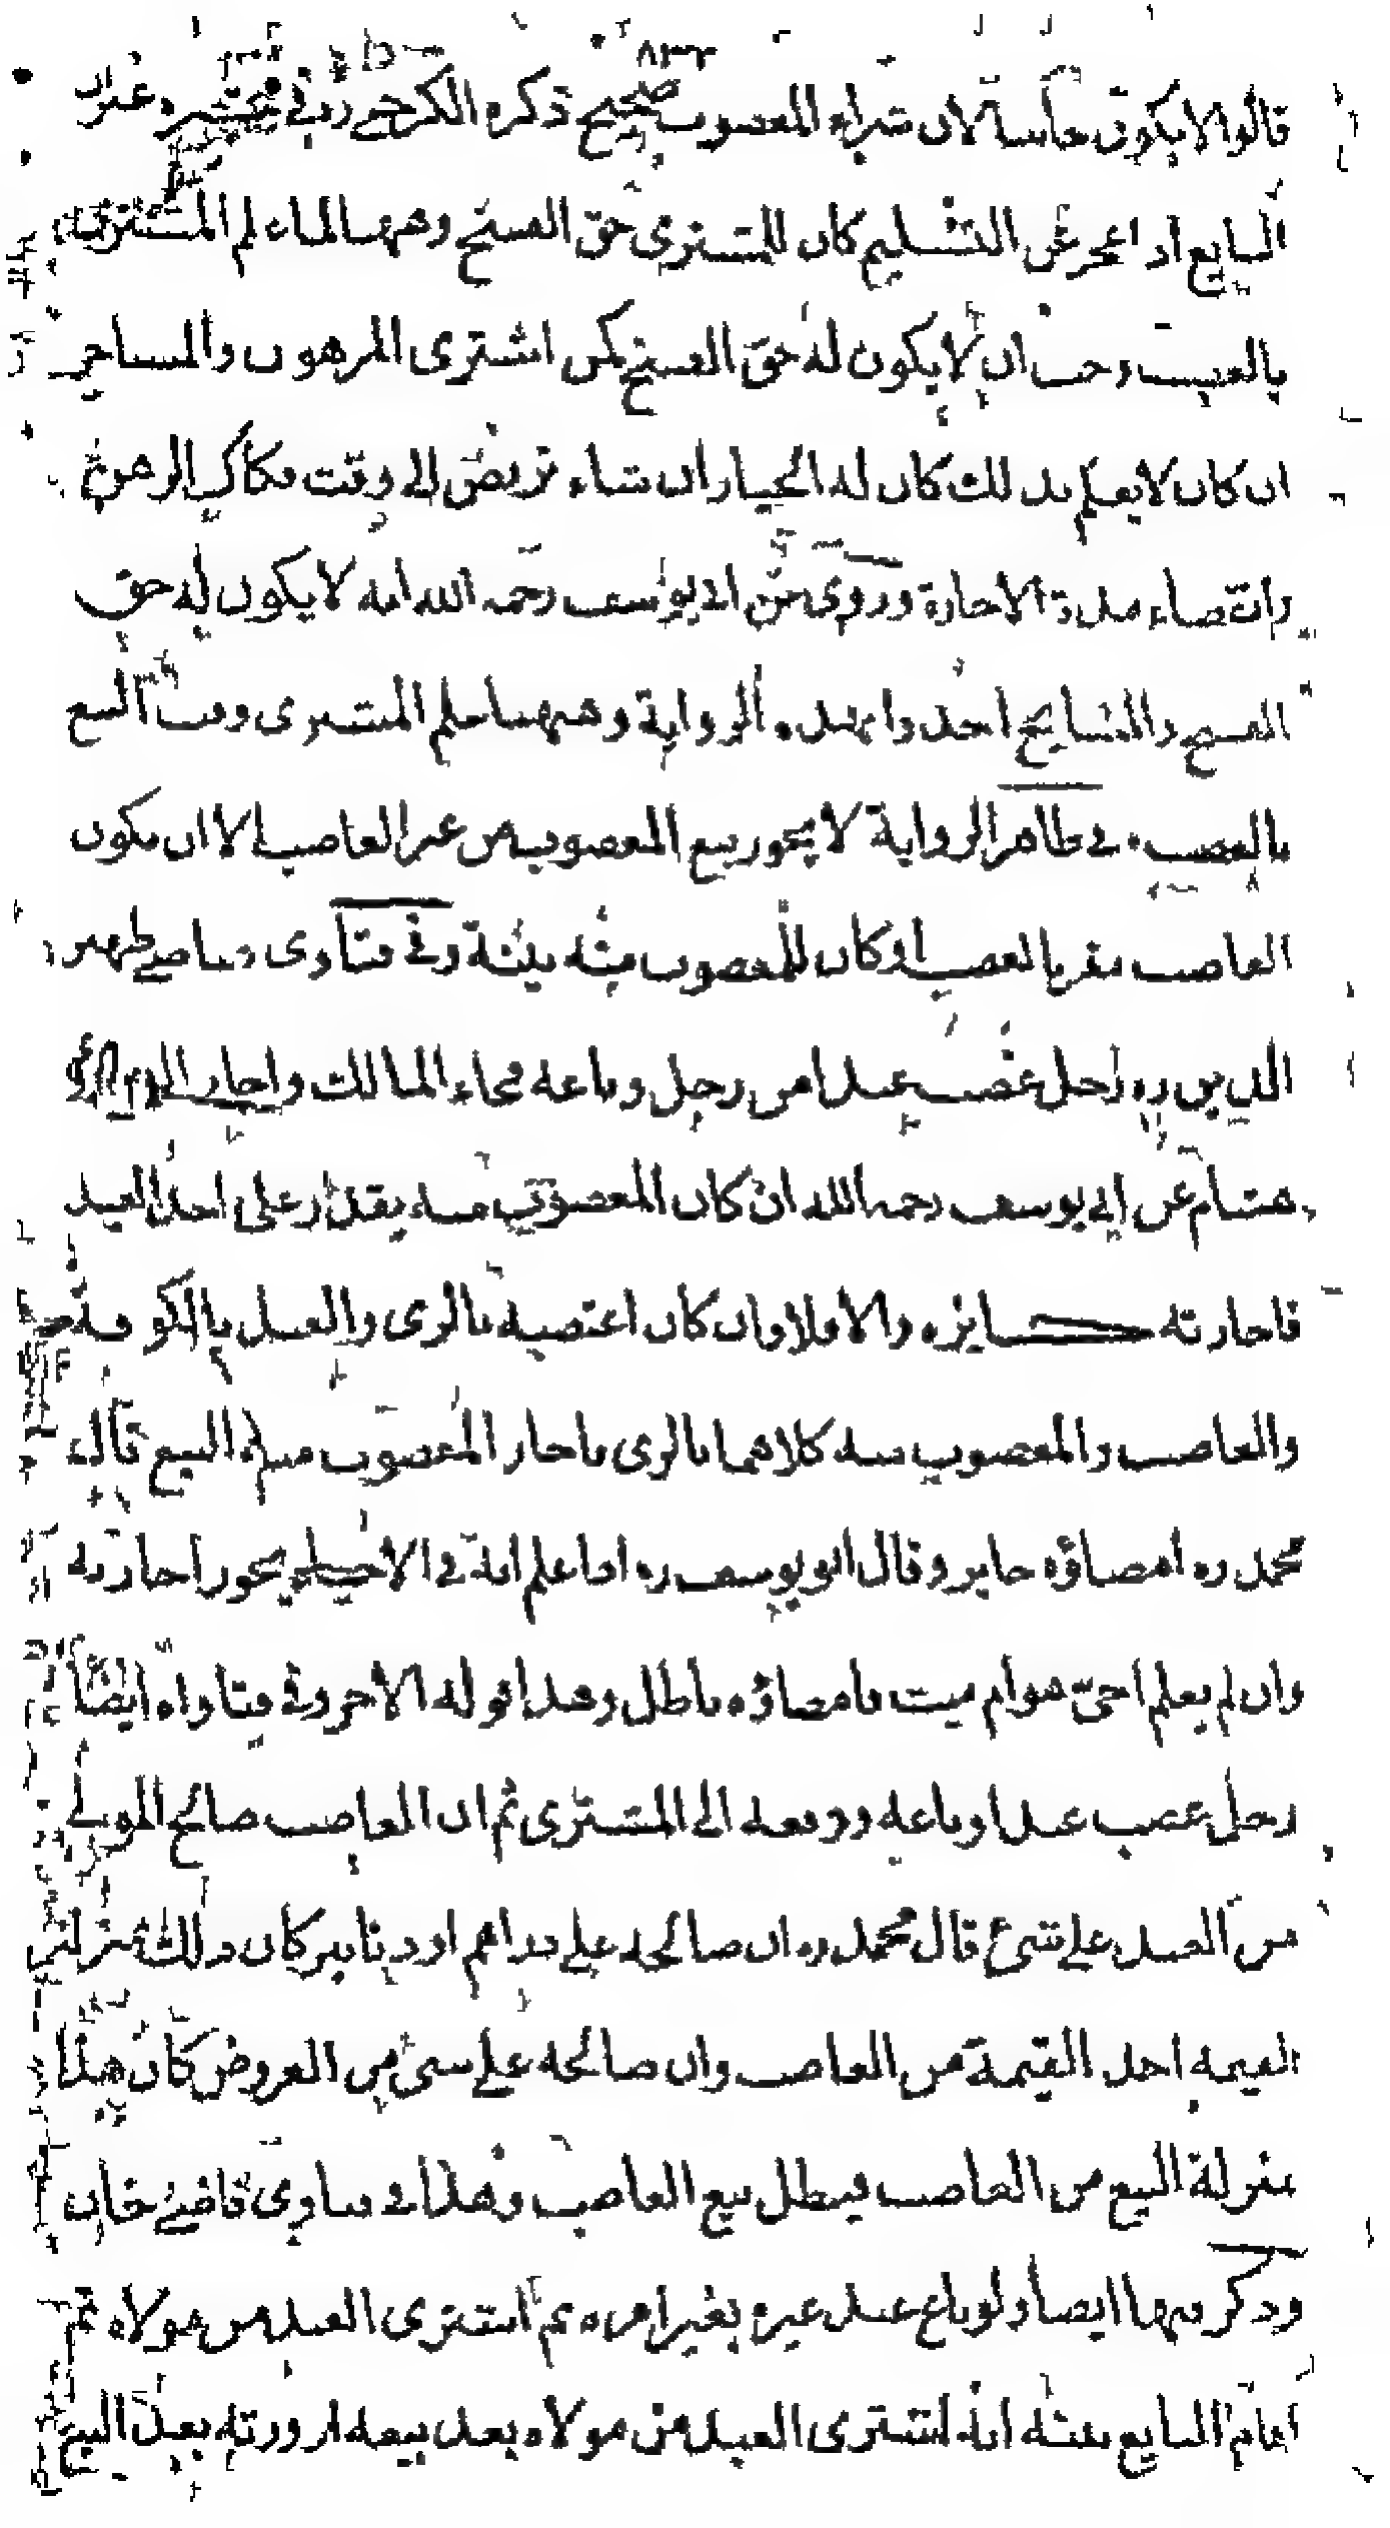 ٨٣٢
قالوا لا يكون جائية لان شراء المغصوب صحيح ذكره الكرخي ره في مختصره وعندان
البايع اذا عجز عن التسليم كان للمشتري حق الفسخ وههنا لما علم المشتري
بالغصب وجب ان لا يكون له حق الفسخ كمن اشترى المرهون والمستاجر
ان كان لا يعلم بذلك كان له الخيار ان شاء تربص الى وقت فكاك الرهن ثم
وانقضاء مدة الاجارة وروي عن ابي يوسف رحمه الله انه لا يكون له حق
الفسخ والمشايخ اخذوا بهذه الرواية وههنا علم المشترى وقت البيع
بالغصب في ظاهر الرواية لا يجوز بيع المغصوب من غير الغاصب الا ان يكون
الغاصب مقر بالغصب او كان للمغصوب منه بينة وفي فتاوى قاضي ظهير
الدين ره رجل غصب عبدا من رجل وباعه فجاء المالك واجاز البيع
هشام عن ابي يوسف رحمه الله ان كان المغصوب منه يقدر على اخذ العبد
فاجازته جايزه والا فلا وان كان اغتصبه بالري والعبد بالكوفة
والغاصب والمغصوب منه كلاهما بالري فاجاز المغصوب منه البيع قال
محمد ره امضاؤه جايز وقال ابو يوسف ره اذا علم انه في الاحياء يجوز اجازته
وان لم يعلم احيّ هو ام ميت فامضاؤه باطل وهذا قوله الاخر وفي فتاواه ايضا
رجل غصب عبدا وباعه ودفعه الى المشترى ثم ان الغاصب صالح المولى
من العبد على شئ قال محمد ره ان صالحه على دراهم او دنانير كان ذلك بمنزلة
القيمه اخذ القيمة من الغاصب وان صالحه على شئ من العروض كان هذا
بمنزلة البيع من الغاصب فيبطل بيع الغاصب وهذا في فتاوى قاضي خان
وذكر فيها ايضا ولو باع عبد غيره بغير امره ثم اشترى العبد من مولاه ثم
اقام البايع بينه انه اشترى العبد من مولاه بعد بيعه او ورثه بعد البيع